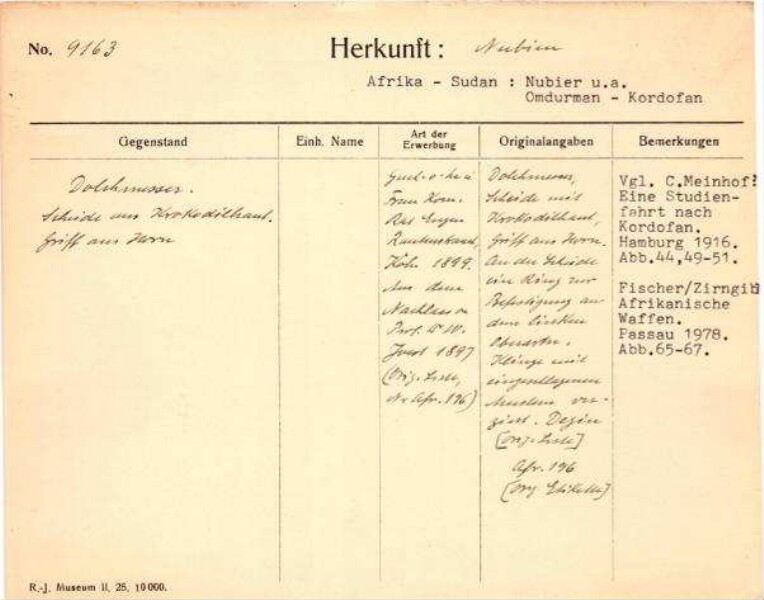 No. 9163 Herkunft: Nubien
Afrika - Sudan : Nubier u.a.
Omdurman - Kordofan
Gegenstand
Einh. Name
Art der
Erwerbung
Originalangaben
Bemerkungen
Dolchmesser.
Scheide aus Krokodilhaut.
Griff aus Horn
Frau Kom.
Rat Eugen
Rautenstrauch,
Köln 1899.
Aus dem
Nachlass v.
Prof. Dr W.
Joest 1897
(Orig. Liste,
No Afr. 196)
Dolchmesser,
Scheide mit
Krokodilhaut,
Griff aus Horn.
An der Scheide
ein Ring zur
Befestigung an
dem linken
Oberarm.
Klinge mit
eingeschlagenen
Mustern ver-
ziert.
[Orig. Liste]
Afr. 196
[Orig Etikette]
Vgl. C.Meinhof:
Eine Studien-
fahrt nach
Kordofan.
Hamburg 1916.
Abb.44,49-51.
Fischer/Zirngibl
Afrikanische
Waffen.
Passau 1978.
Abb.65-67.
R.-J. Museum II, 25, 10000.